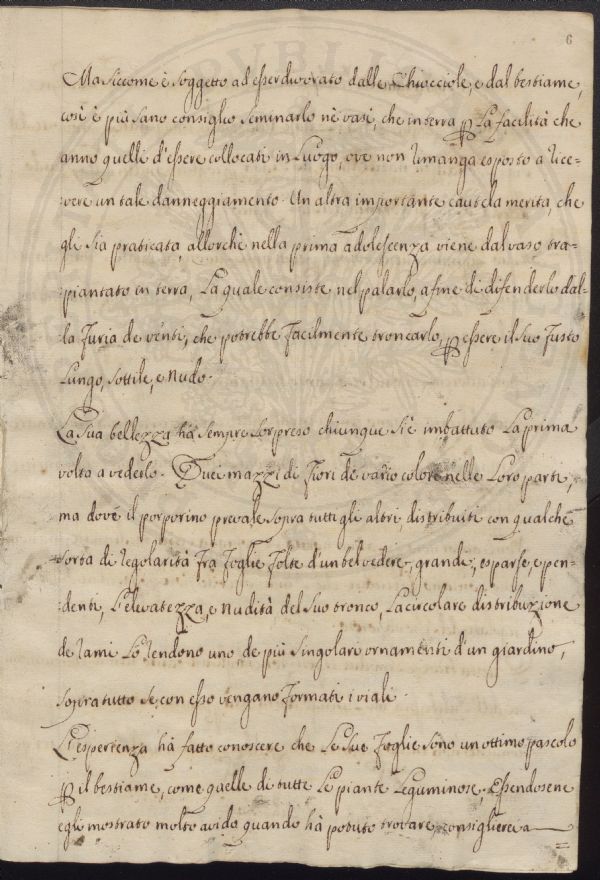 6
Ma siccome è soggetto ad esser divorato dalle Chiocciole, e dal bestiame,
così è più sano consiglio seminarlo nè vasi, che in terra ꝑ La facilità che
anno quelli d'essere collocati in Luogo, ove non rimanga esposto a rice=
:vere un tale danneggiamento. Un altra importante cautela merita, che
gli sia praticata, allorchè nella prima adolescenza viene dal vaso tra=
:piantato in terra, La quale consiste nel palarlo, afine di difenderlo dal=
:la furia de venti, che potrebbe facilmente troncarlo, ꝑ essere il suo fusto
Lungo, sottile, e nudo.
La sua bellezza hà sempre sorpreso chiunque si è imbattuto La prima
volta a vederlo. Quei mazzi di fiori di vario colore nelle Loro parti,
ma dove il porporino prevale sopra tutti gli altri, distribuiti con qualche
sorta di regolarità fra foglie folte d'un bel vedere, grandi, esparse, e pen=
:denti, L'elevatezza, e nudità del suo tronco, La circolare distribuzione
de rami Lo rendono uno de più singolari ornamenti d'un giardino,
sopratutto se con esso vengano formati i viali.
L'esperienza hà fatto conoscere che Le sue foglie sono un ottimo pascolo
ꝑ il bestiame, come quelle di tutte Le piante Leguminose. Essendosene
egli mostrato molto avido quando hà potuto trovare, consiglierei a